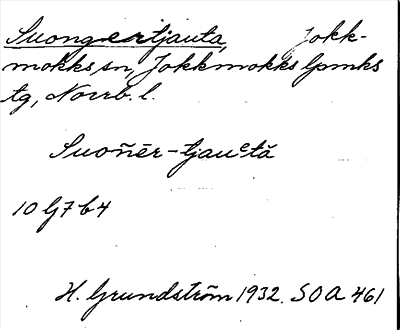 Suongertjauta, Jokk-
mokks sn, Jokkmokks lpmks
tg, Norrb. l.
Suoñēr-tjauᶜtă
10 G7 b4
H. Grundström 1932. SOA 461